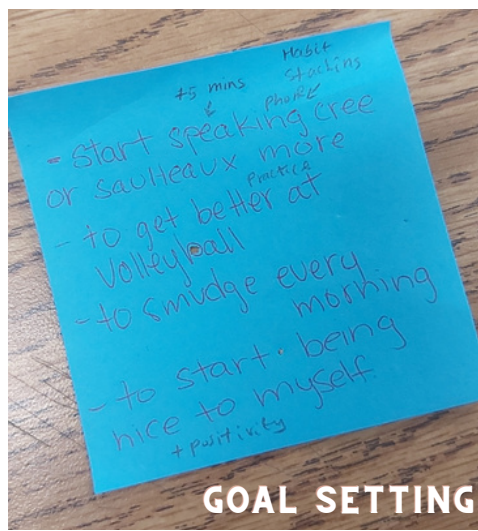 Habit
Stacking
+5 mins
Phone
- Start speaking cree
or saulteaux more
Practice
- to get better at
Volleyball
- to smudge every
morning
- to start being
nice to myself.
+ positivity
GOAL SETTING